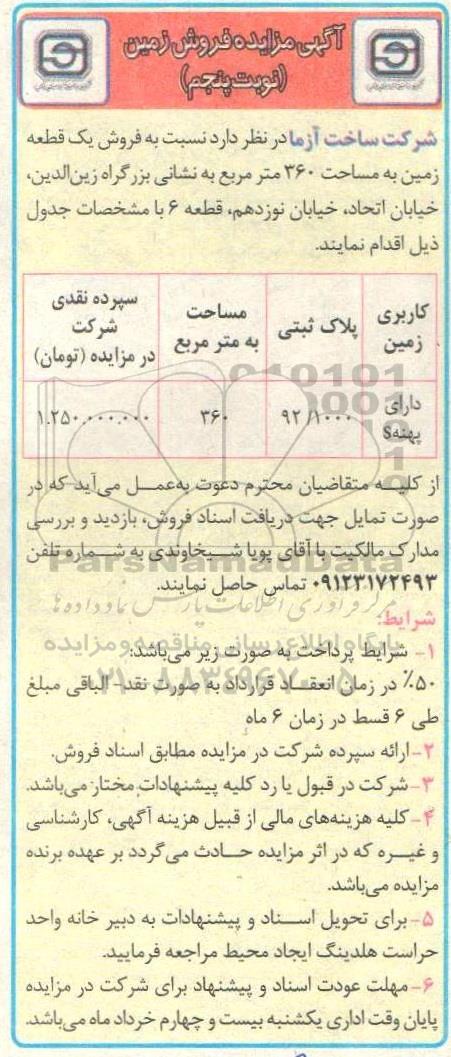 آگهی مزایده فروش زمین
(نوبت پنجم)
شرکت ساخت آزما در نظر دارد نسبت به فروش یک قطعه
زمین به مساحت ۳۶۰ متر مربع به نشانی بزرگراه زین‌الدین،
خیابان اتحاد، خیابان نوزدهم، قطعه ۶ با مشخصات جدول
ذیل اقدام نمایند.
کاربری زمین | پلاک ثبتی | مساحت به متر مربع | سپرده نقدی شرکت در مزایده (تومان)
دارای پهنه S | ۹۲/۱۰۰۰ | ۳۶۰ | ۱.۲۵۰.۰۰۰.۰۰۰
از کلیه متقاضیان محترم دعوت به‌عمل می‌آید که در
صورت تمایل جهت دریافت اسناد فروش، بازدید و بررسی
مدارک مالکیت با آقای پویا شیخاوندی به شماره تلفن
۰۹۱۲۳۱۷۲۴۹۳ تماس حاصل نمایند.
شرایط:
۱- شرایط پرداخت به صورت زیر می‌باشد:
۵۰٪ در زمان انعقاد قرارداد به صورت نقد- الباقی مبلغ
طی ۶ قسط در زمان ۶ ماه
۲-ارائه سپرده شرکت در مزایده مطابق اسناد فروش.
۳-شرکت در قبول یا رد کلیه پیشنهادات مختار می‌باشد.
۴-کلیه هزینه‌های مالی از قبیل هزینه آگهی، کارشناسی
و غیره که در اثر مزایده حادث می‌گردد بر عهده برنده
مزایده می‌باشد.
۵-برای تحویل اسناد و پیشنهادات به دبیر خانه واحد
حراست هلدینگ ایجاد محیط مراجعه فرمایید.
۶-مهلت عودت اسناد و پیشنهاد برای شرکت در مزایده
پایان وقت اداری یکشنبه بیست و چهارم خرداد ماه می‌باشد.
ParsNamadData
مرکز فرآوری اطلاعات پارس نماد داده‌ها
پایگاه اطلاع رسانی مناقصه و مزایده
۰۲۱-۸۸۳۴۹۶۷۰-۵